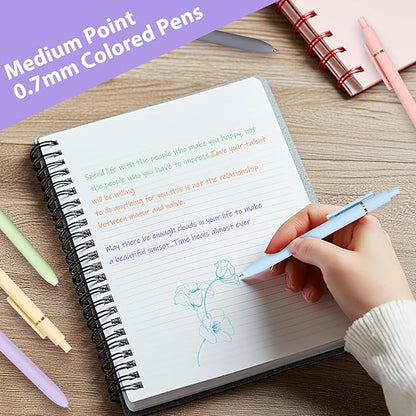 Medium Point
0.7mm Colored Pens
Spend life with the people who make you happy, not
the people who you have to impress.Love your talent
will be willing
to do anything for you,this is not the relationship
between matur and naive.
May there be enough clouds in your life to make
a beautiful sunset...Time heals almost ever